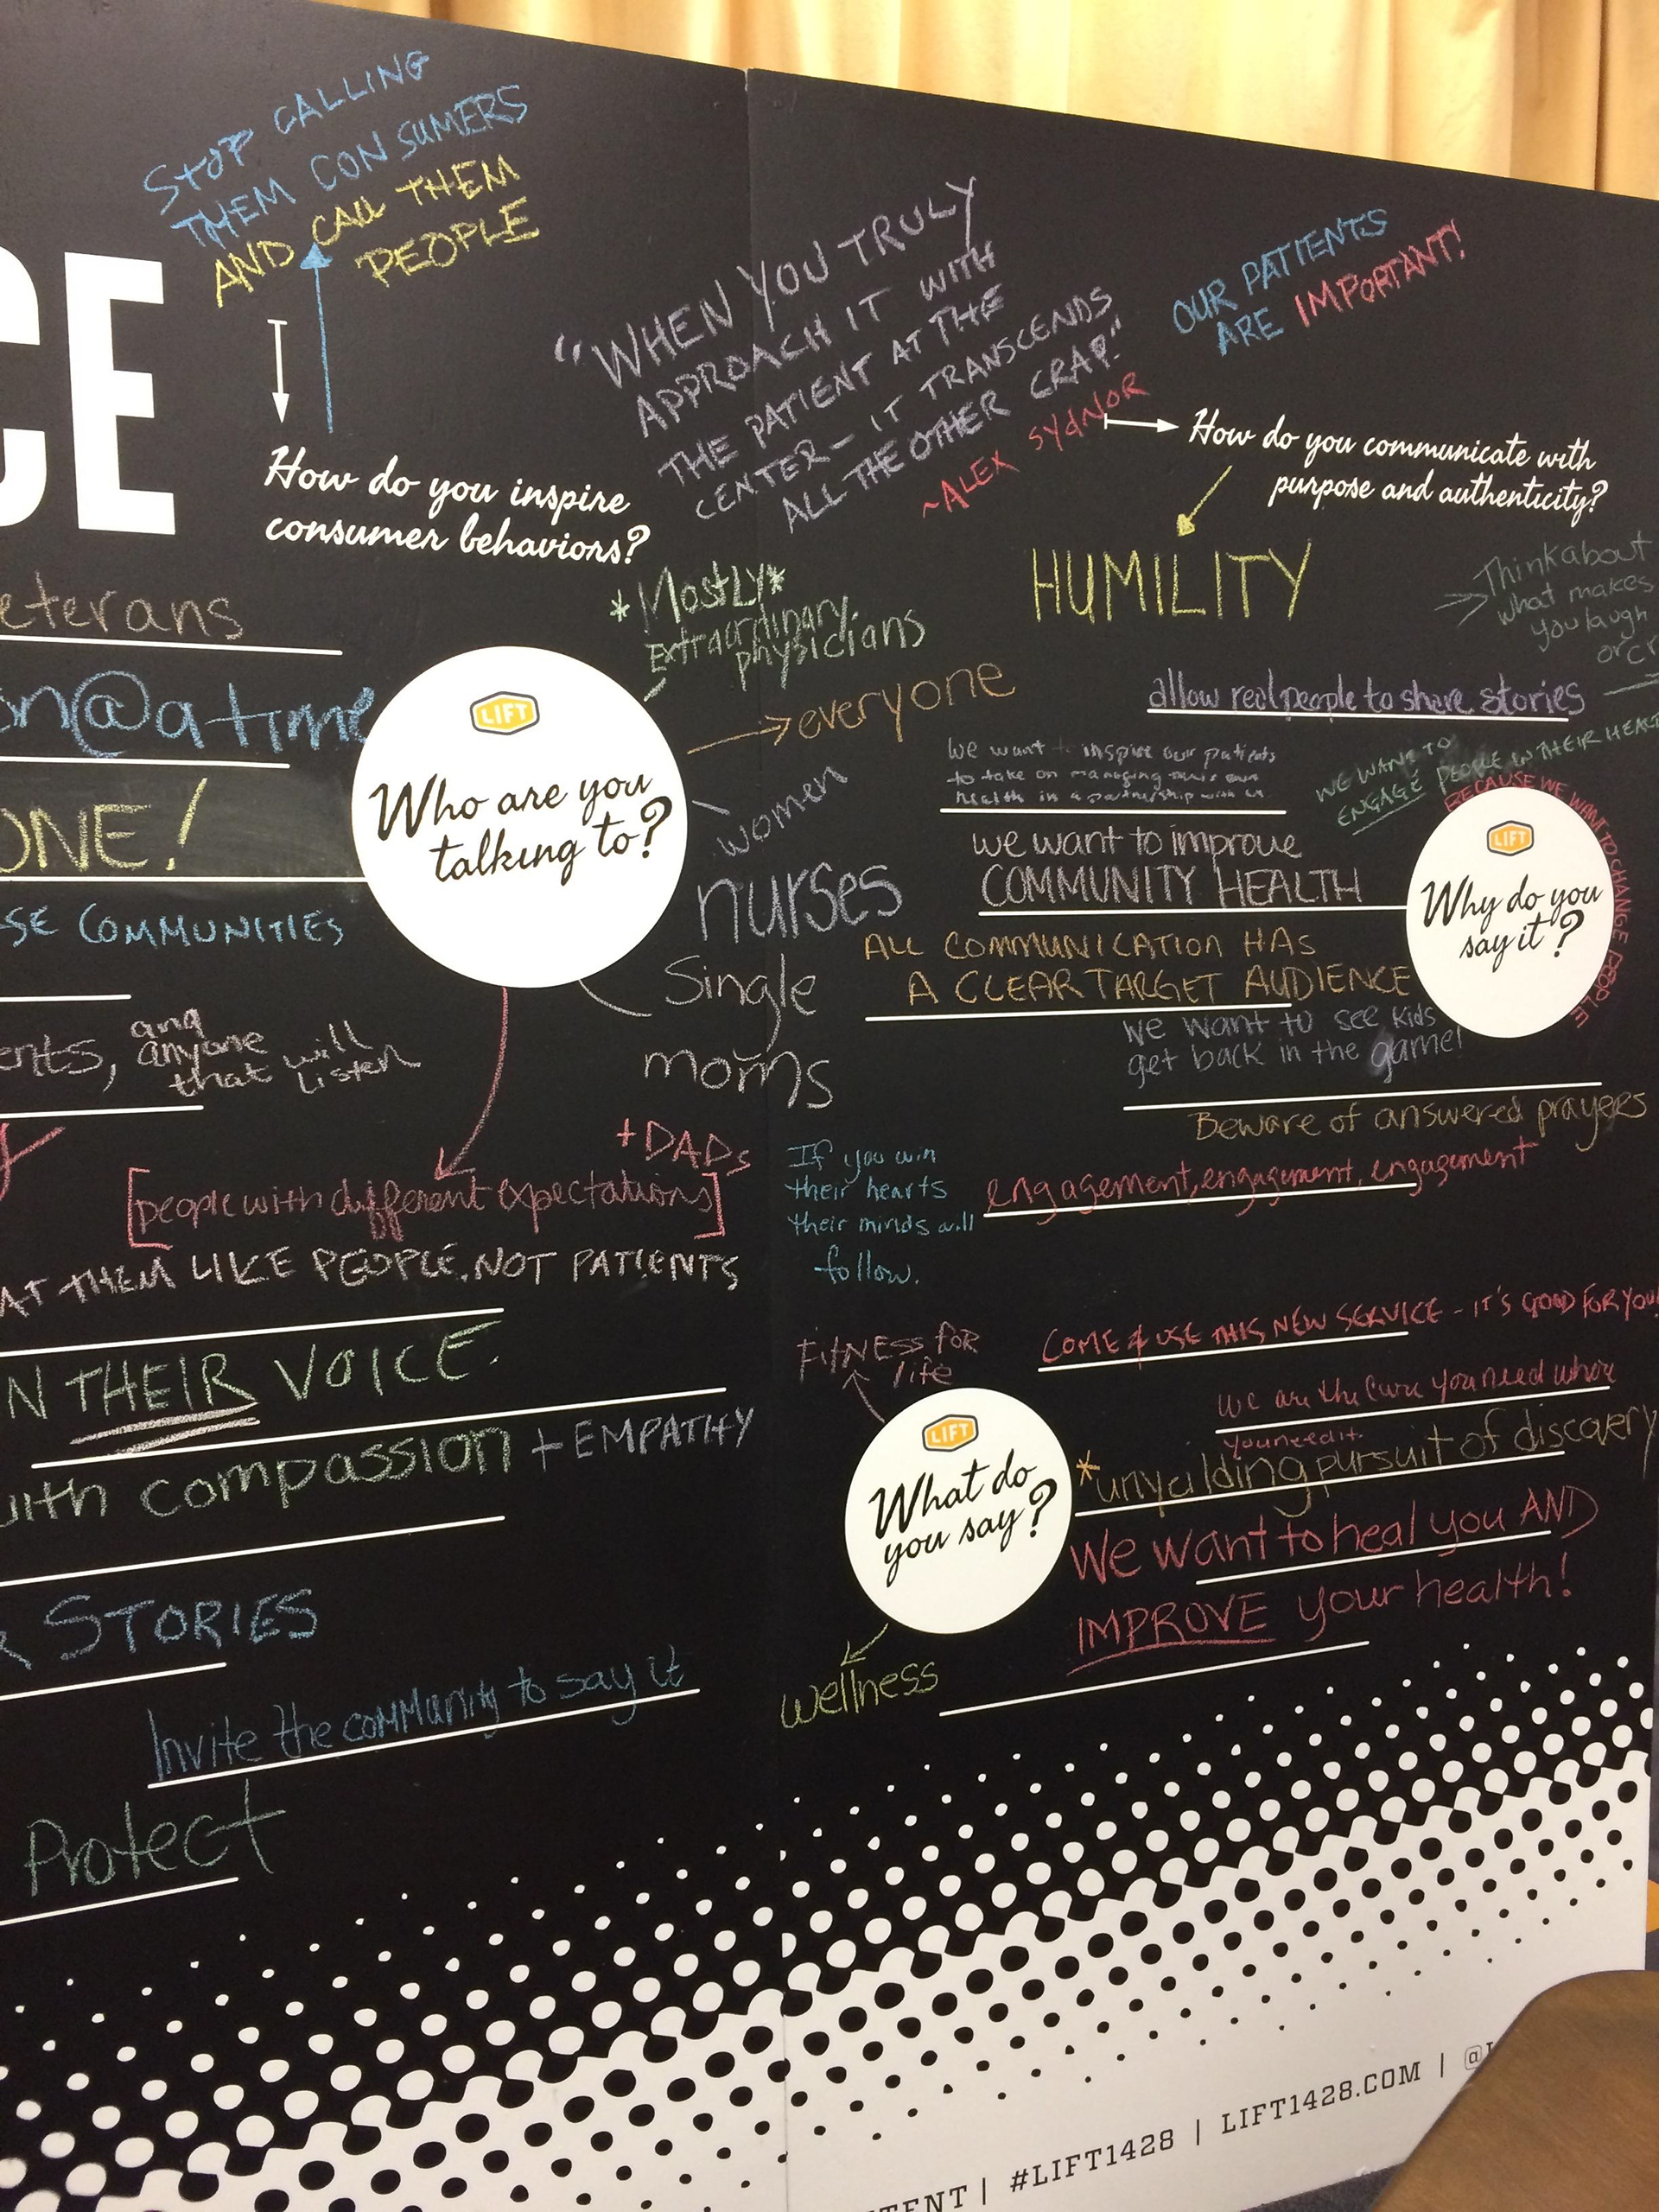 STOP CALLING
THEM CONSUMERS
AND CALL THEM
PEOPLE
CE
How do you inspire
consumer behaviors?
"WHEN YOU TRULY
APPROACH IT WITH
THE PATIENT AT THE
CENTER - IT TRANSCENDS
ALL THE OTHER CRAP."
~ALEX SYDNOR
OUR PATIENTS
ARE IMPORTANT!
How do you communicate with
purpose and authenticity?
HUMILITY
Think about
what makes
you laugh
or cr
eterans
on@a time
ONE!
SE COMMUNITIES
ents, and
anyone
that will
listen
LIFT
Who are you
talking to?
*Mostly*
Extraordinary
physicians
everyone
women
nurses
Single
moms
+DADs
[people with different expectations]
AT THEM LIKE PEOPLE, NOT PATIENTS
N THEIR VOICE.
with compassion + EMPATHY
R STORIES
Invite the community to say it
Protect
allow real people to share stories
We want to inspire our patients
to take on managing their own
health in a partnership with us.
we want to improve
COMMUNITY HEALTH
ALL COMMUNICATION HAS
A CLEAR TARGET AUDIENCE
We want to see kids
get back in the game!
Beware of answered prayers
engagement, engagement, engagement
WE WANT TO
ENGAGE PEOPLE IN THEIR HEALT
BECAUSE WE WANT TO CHANGE PEOPLE
LIFT
Why do you
say it?
If you win
their hearts
their minds will
follow.
FITNESS FOR
life
COME & USE THIS NEW SERVICE - IT'S GOOD FOR YOU!
We are the Cure you need when
you need it.
*unyeilding pursuit of discovery
We want to heal you AND
IMPROVE your health!
LIFT
What do
you say?
wellness
TENT | #LIFT1428 | LIFT1428.COM | @L